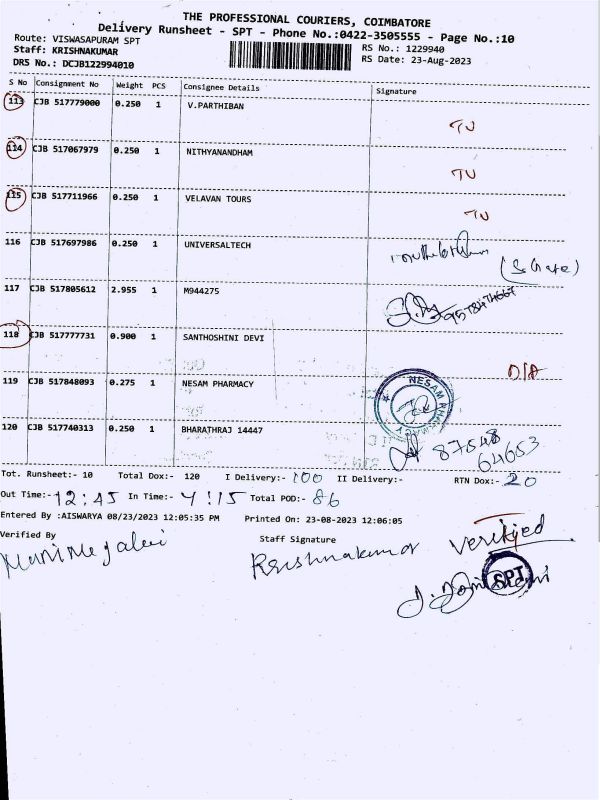 THE PROFESSIONAL COURIERS, COIMBATORE
Delivery Runsheet - SPT - Phone No.:0422-3505555 - Page No.:10
Route: VISWASAPURAM SPT RS No.: 1229940
Staff: KRISHNAKUMAR RS Date: 23-Aug-2023
DRS No.: DCJB122994010
S No Consignment No Weight PCS Consignee Details Signature
113 CJB 517779000 0.250 1 V.PARTHIBAN
114 CJB 517067979 0.250 1 NITHYANANDHAM
115 CJB 517711966 0.250 1 VELAVAN TOURS
116 CJB 517697986 0.250 1 UNIVERSALTECH
117 CJB 517805612 2.955 1 M944275
118 CJB 517777731 0.900 1 SANTHOSHINI DEVI D/A
119 CJB 517848093 0.275 1 NESAM PHARMACY NESAM PHARMACY
120 CJB 517740313 0.250 1 BHARATHRAJ 14447 87548
64653
Tot. Runsheet:- 10 Total Dox:- 120 I Delivery:- 100 II Delivery:- RTN Dox:- 20
Out Time:- 12:45 In Time:- 4:15 Total POD:- 86
Entered By :AISWARYA 08/23/2023 12:05:35 PM Printed On: 23-08-2023 12:06:05
Verified By Staff Signature
Krishnakumar Verified
SPT